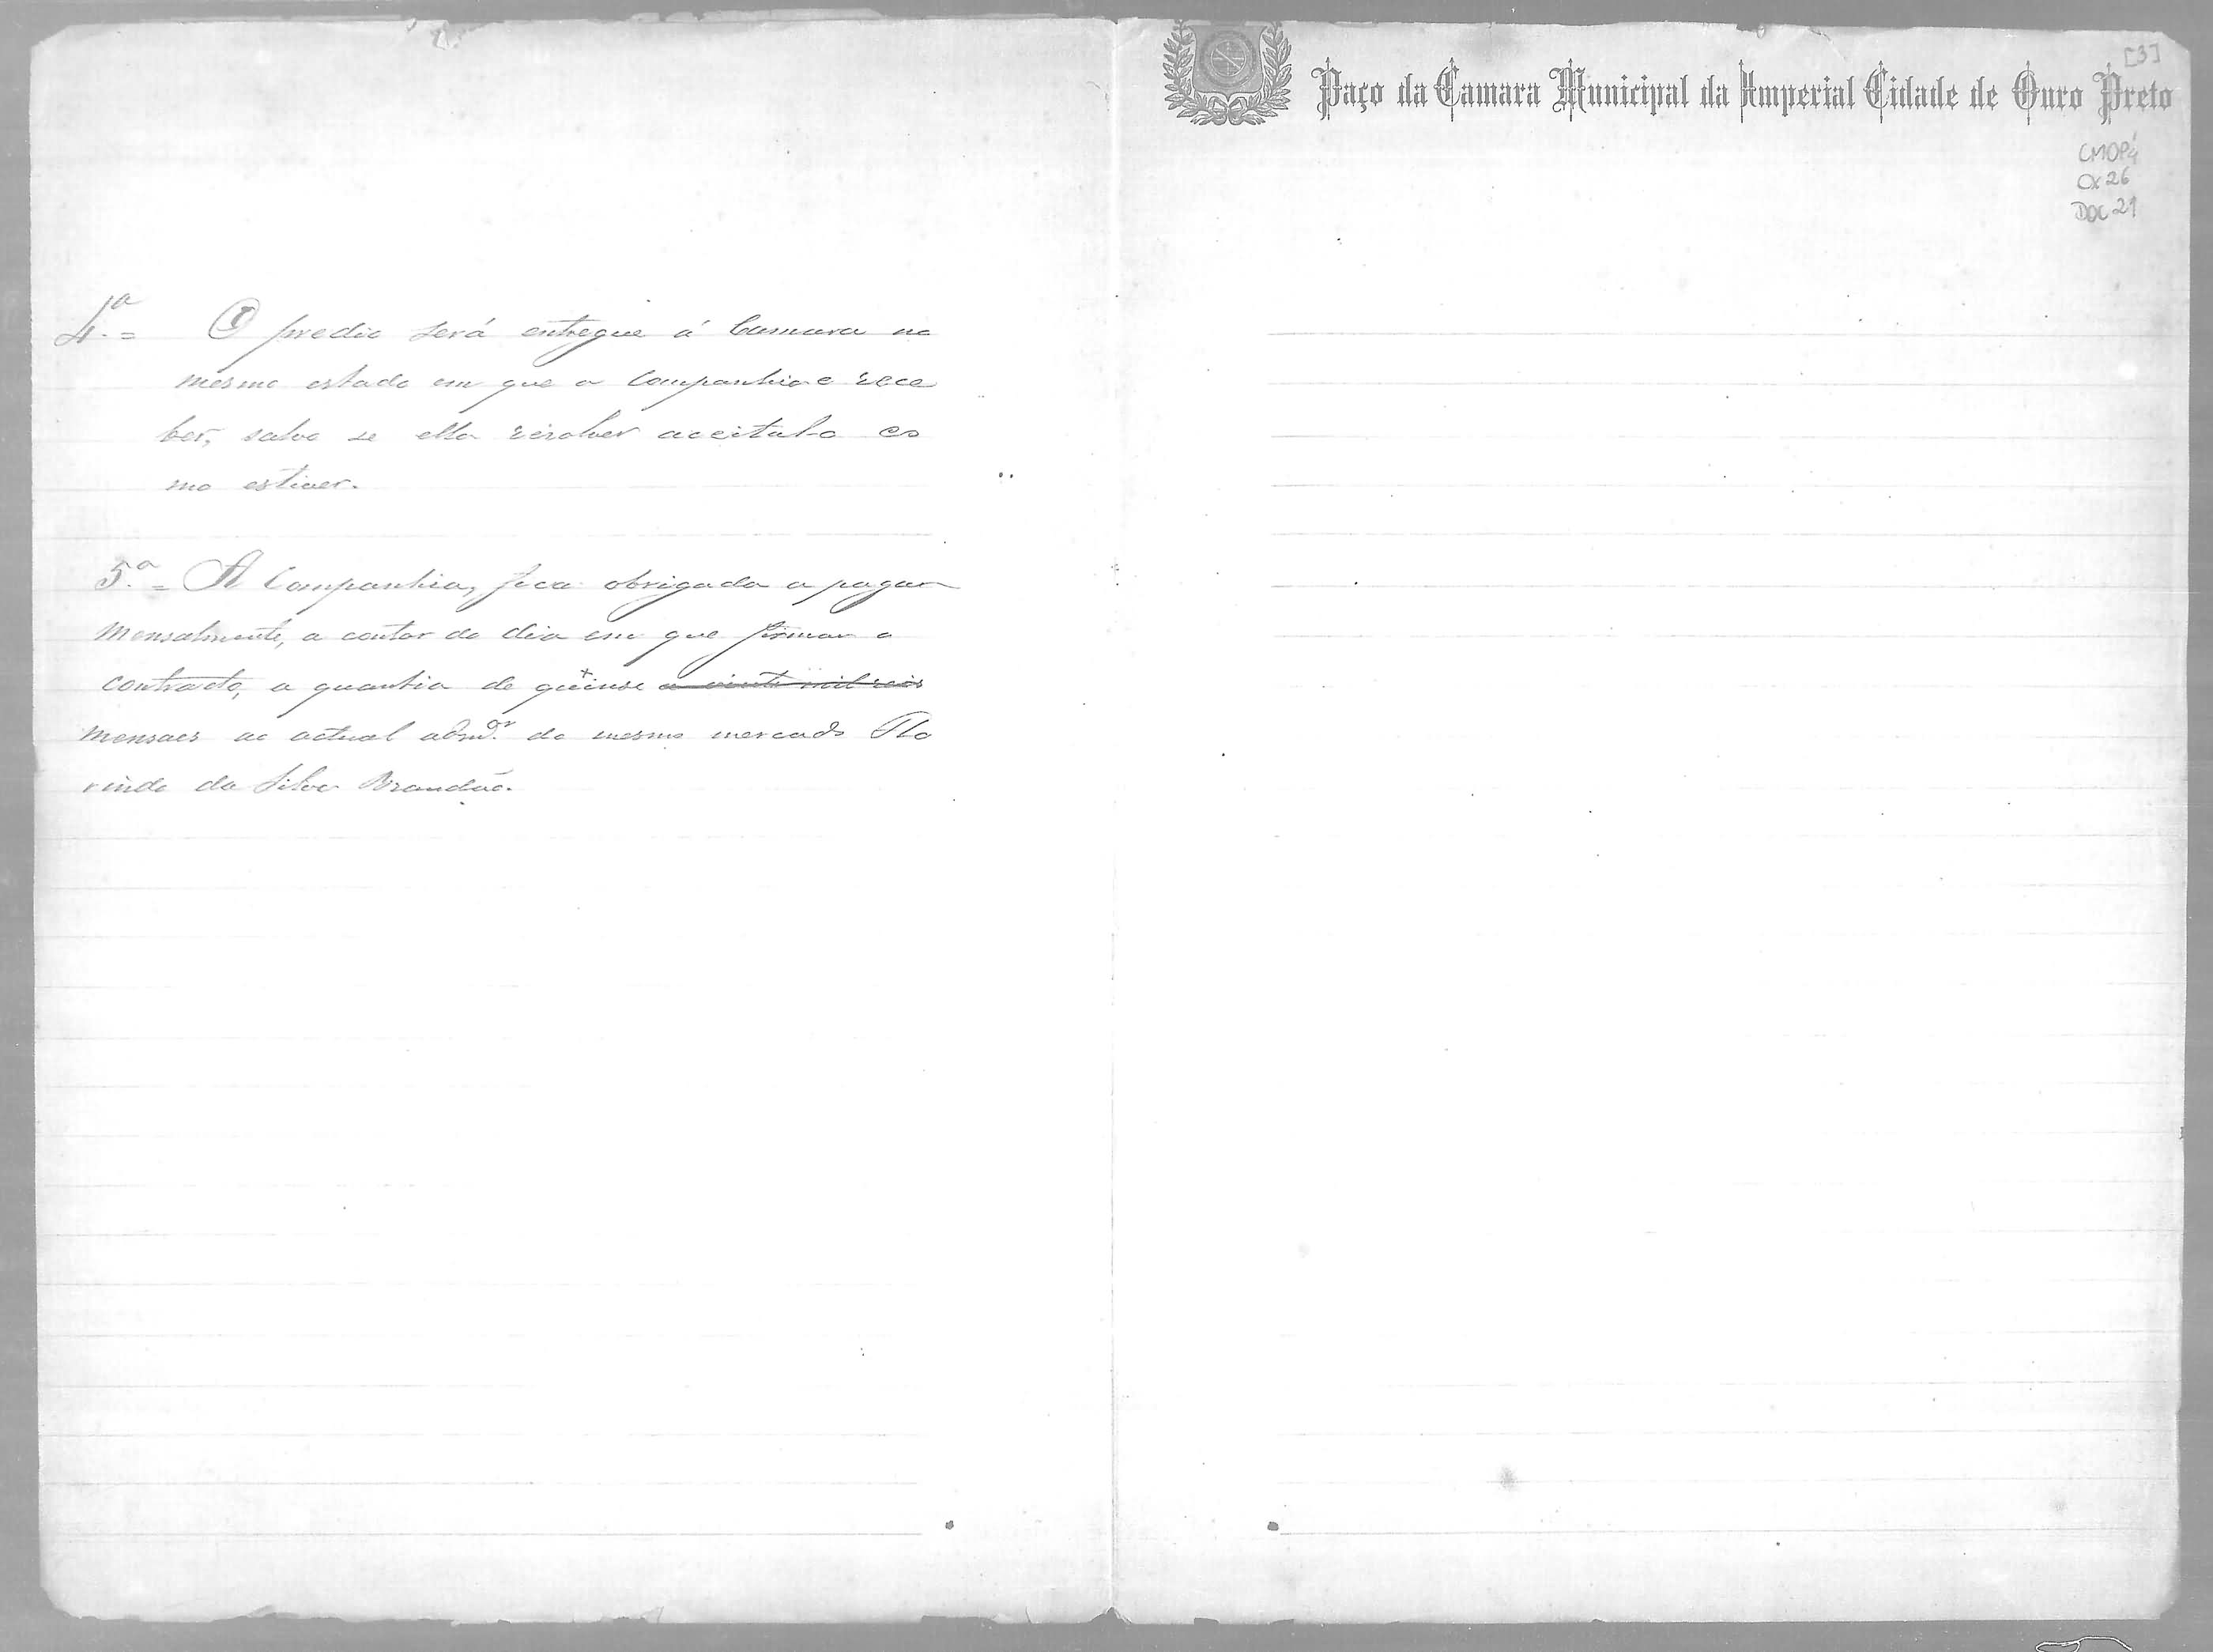 4.ª = O predio será entregue á Camara no
mesmo estado em que a Companhia o rece
ber, salvo se ella resolver aceital-o co
mo estiver.
5.ª = A Companhia, fica obrigada a pagar
mensalmente, a contar do dia em que firmar o
contracto, a quantia de quinse e vinte mil reis
mensaes ao actual admor. do mesmo mercado Flo
rindo da Silva Brandão.
[3]
Paço da Camara Municipal da Imperial Cidade de Ouro Preto
CMOP
Cx 26
DOC 21